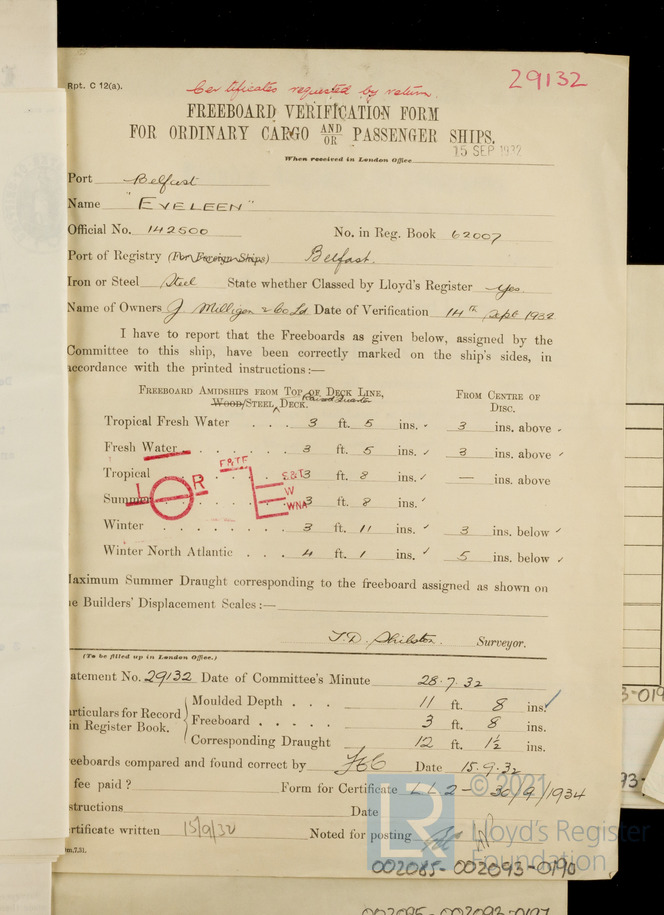 Rpt. C 12(a).
Certificates requested by return.
29132
FREEBOARD VERIFICATION FORM
FOR ORDINARY CARGO AND/OR PASSENGER SHIPS.
When received in London Office 15 SEP 1932
Port Belfast
Name "EVELEEN"
Official No. 142500 No. in Reg. Book 62007
Port of Registry (For Foreign Ships) Belfast.
Iron or Steel Steel State whether Classed by Lloyd's Register Yes
Name of Owners J Milligan & Co Ld Date of Verification 14th Sept 1932
I have to report that the Freeboards as given below, assigned by the
Committee to this ship, have been correctly marked on the ship's sides, in
accordance with the printed instructions:—
FREEBOARD AMIDSHIPS FROM TOP OF DECK LINE, FROM CENTRE OF
WOOD/STEEL Raised Quarter DECK. DISC.
Tropical Fresh Water . . . 3 ft. 5 ins. ✓ 3 ins. above ✓
Fresh Water . . . . . 3 ft. 5 ins. ✓ 3 ins. above ✓
F&TF
Tropical 3 ft. 8 ins. ✓ — ins. above
L R S&T
Summer 3 ft. 8 ins. ✓
W
WNA
Winter . . . . . . . 3 ft. 11 ins. ✓ 3 ins. below ✓
Winter North Atlantic . . . 4 ft. 1 ins. ✓ 5 ins. below ✓
Maximum Summer Draught corresponding to the freeboard assigned as shown on
e Builders' Displacement Scales:—
Surveyor.
(To be filled up in London Office.)
atement No. 29132 Date of Committee's Minute 28.7.32
articulars for Record in Register Book.
Moulded Depth . . . 11 ft. 8 ins. ✓
Freeboard . . . . . 3 ft. 8 ins.
Corresponding Draught 12 ft. 1½ ins.
eeboards compared and found correct by Date 15.9.32
fee paid ? Form for Certificate LL2 - 30/9/1934
structions Date
rtificate written 15/9/32 Noted for posting
m.7,31.
© 2021
LR Lloyd's Register
Foundation
002085-002093-0190
002085-002093-0197
3-019
93-